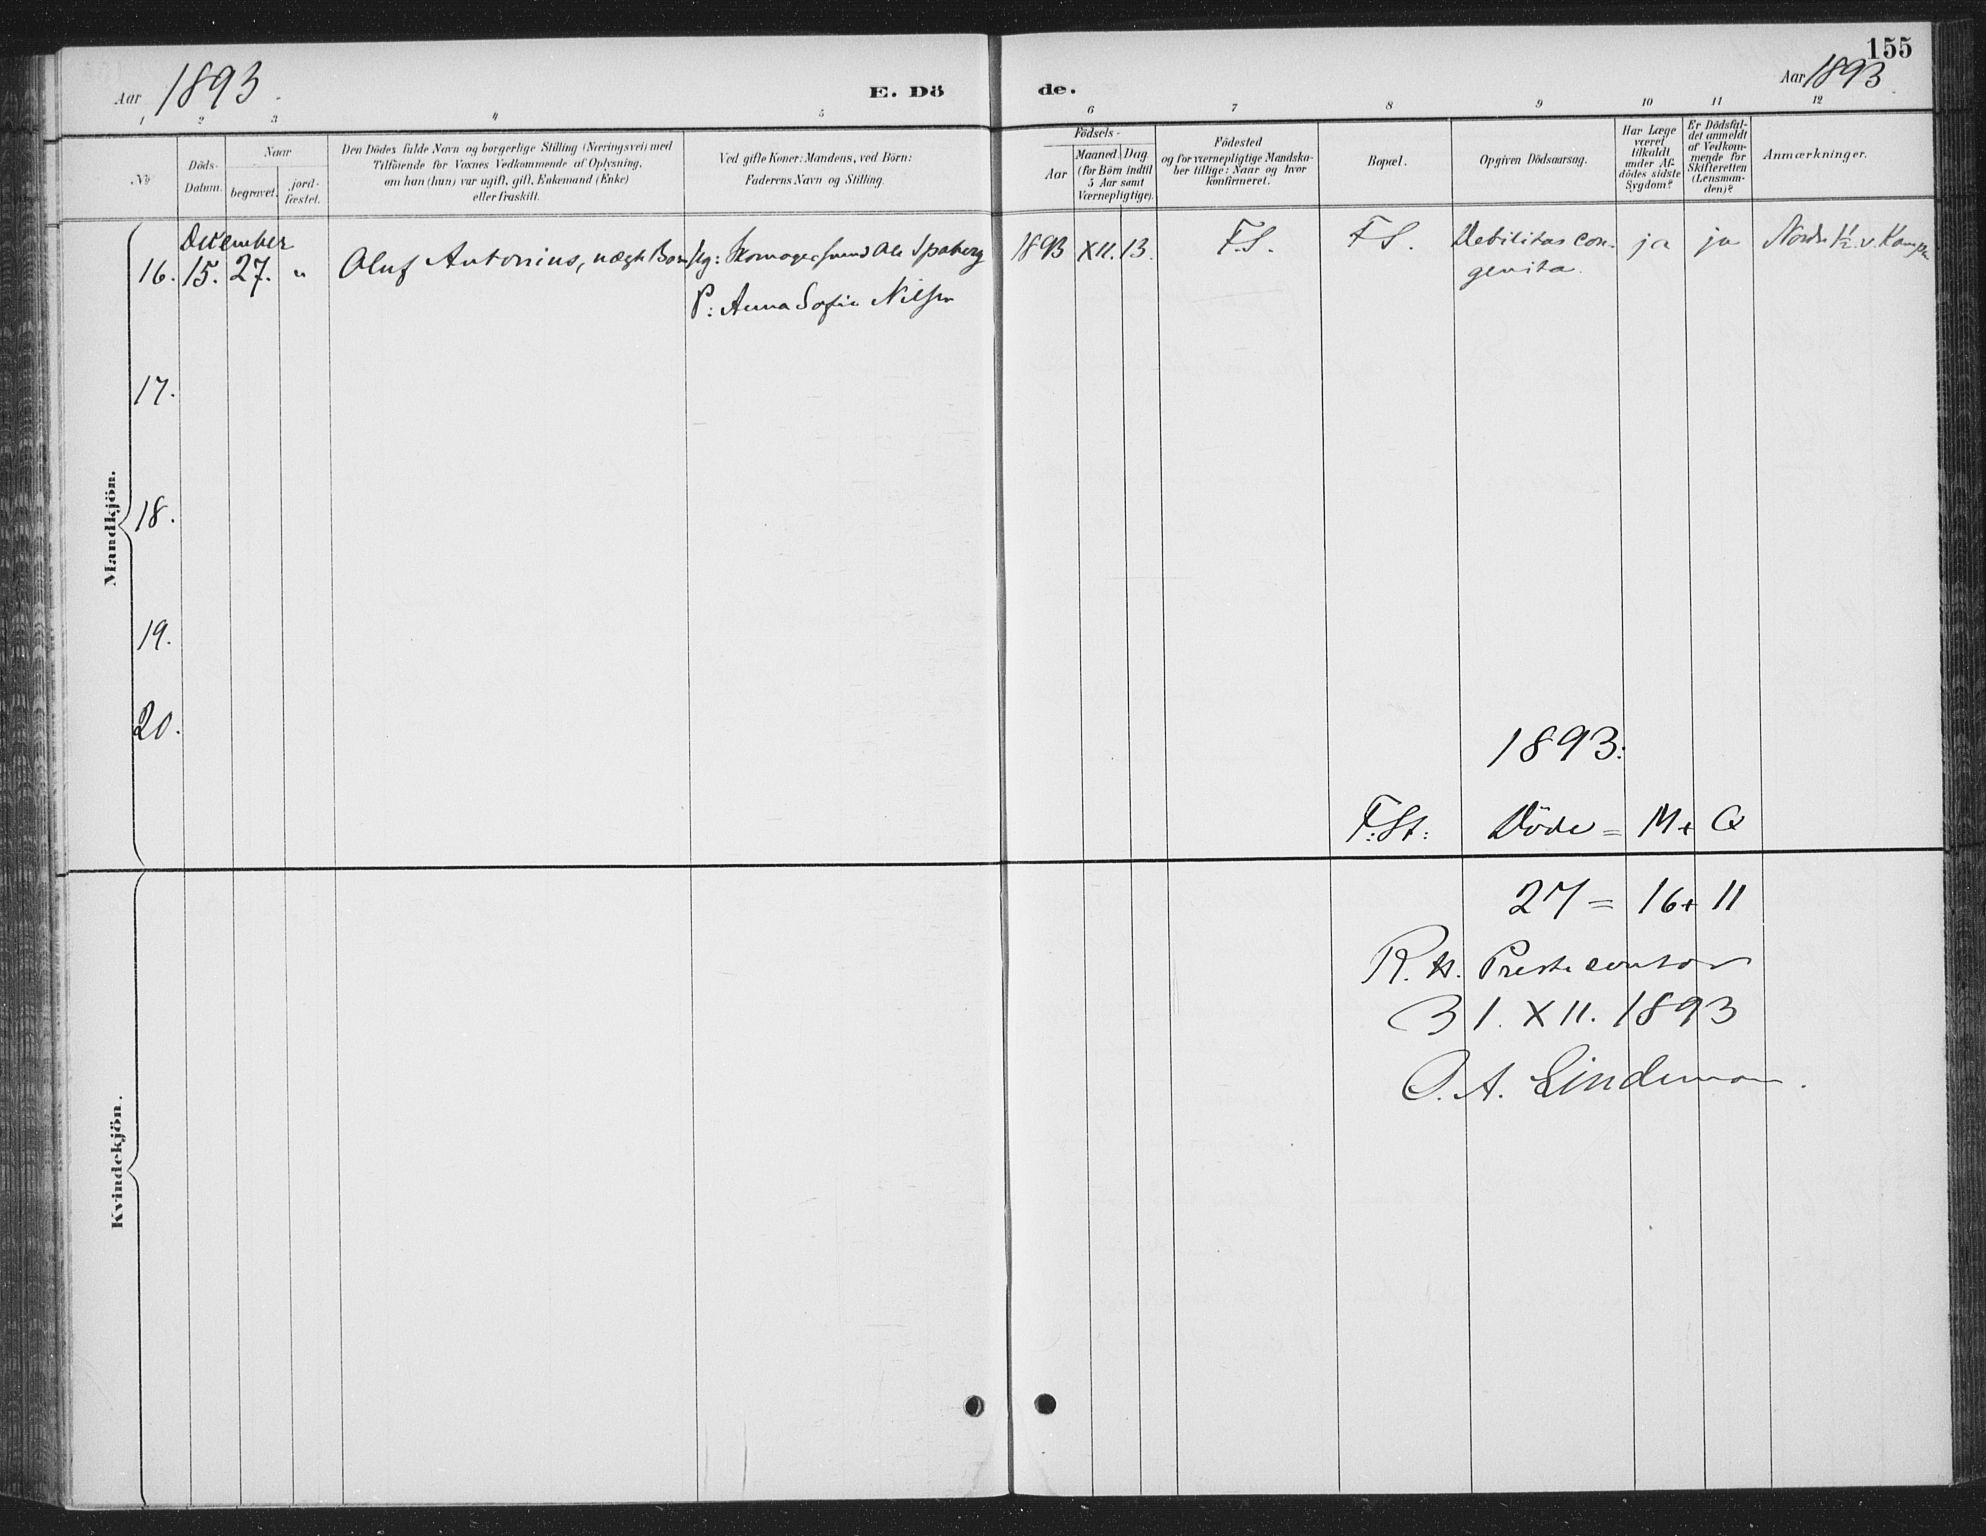 155
Aar 1893.
E. Dö
de.
Aar 1893.
1 2 3 4 5 6 7 8 9 10 11 12
No
Döds-
Datum.
Naar
begravet.
jord-
fæstet.
Den Dödes fulde Navn og borgerlige Stilling (Næringsvei) med
Tilföiende for Voxnes Vedkommende af Oplysning,
om han (hun) var ugift, gift, Enkemand (Enke)
eller fraskilt.
Ved gifte Koner: Mandens, ved Börn:
Faderens Navn og Stilling.
Födsels-
Aar
Maaned. Dag
(for Börn indtil
5 Aar samt
Værnepligtige).
Födested
og for værnepligtige Mandska-
ber tillige: Naar og hvor
konfirmeret.
Bopæl.
Opgiven Dödsaarsag.
Har Læge
været
tilkaldt
under Af-
dödes sidste
Sygdom?
Er Dödsfal-
det anmeldt
af Vedkom-
mende for
Skifteretten
(Lensman-
den)?
Anmærkninger.
Mandkjön.
December
16. 15. 27. " Oluf Antonius, uægte Barn Ole
P: Anna Sofie Nilsen
1893 XII. 13. F.S. F.S. Debilitas con-
genita.
ja ja Nordre
17.
18.
19.
20.
1893:
F. St: Döde = M + Q
27 = 16 + 11
Prestecontor
31. XII. 1893
O. A. Lindeman.
Kvindekjön.